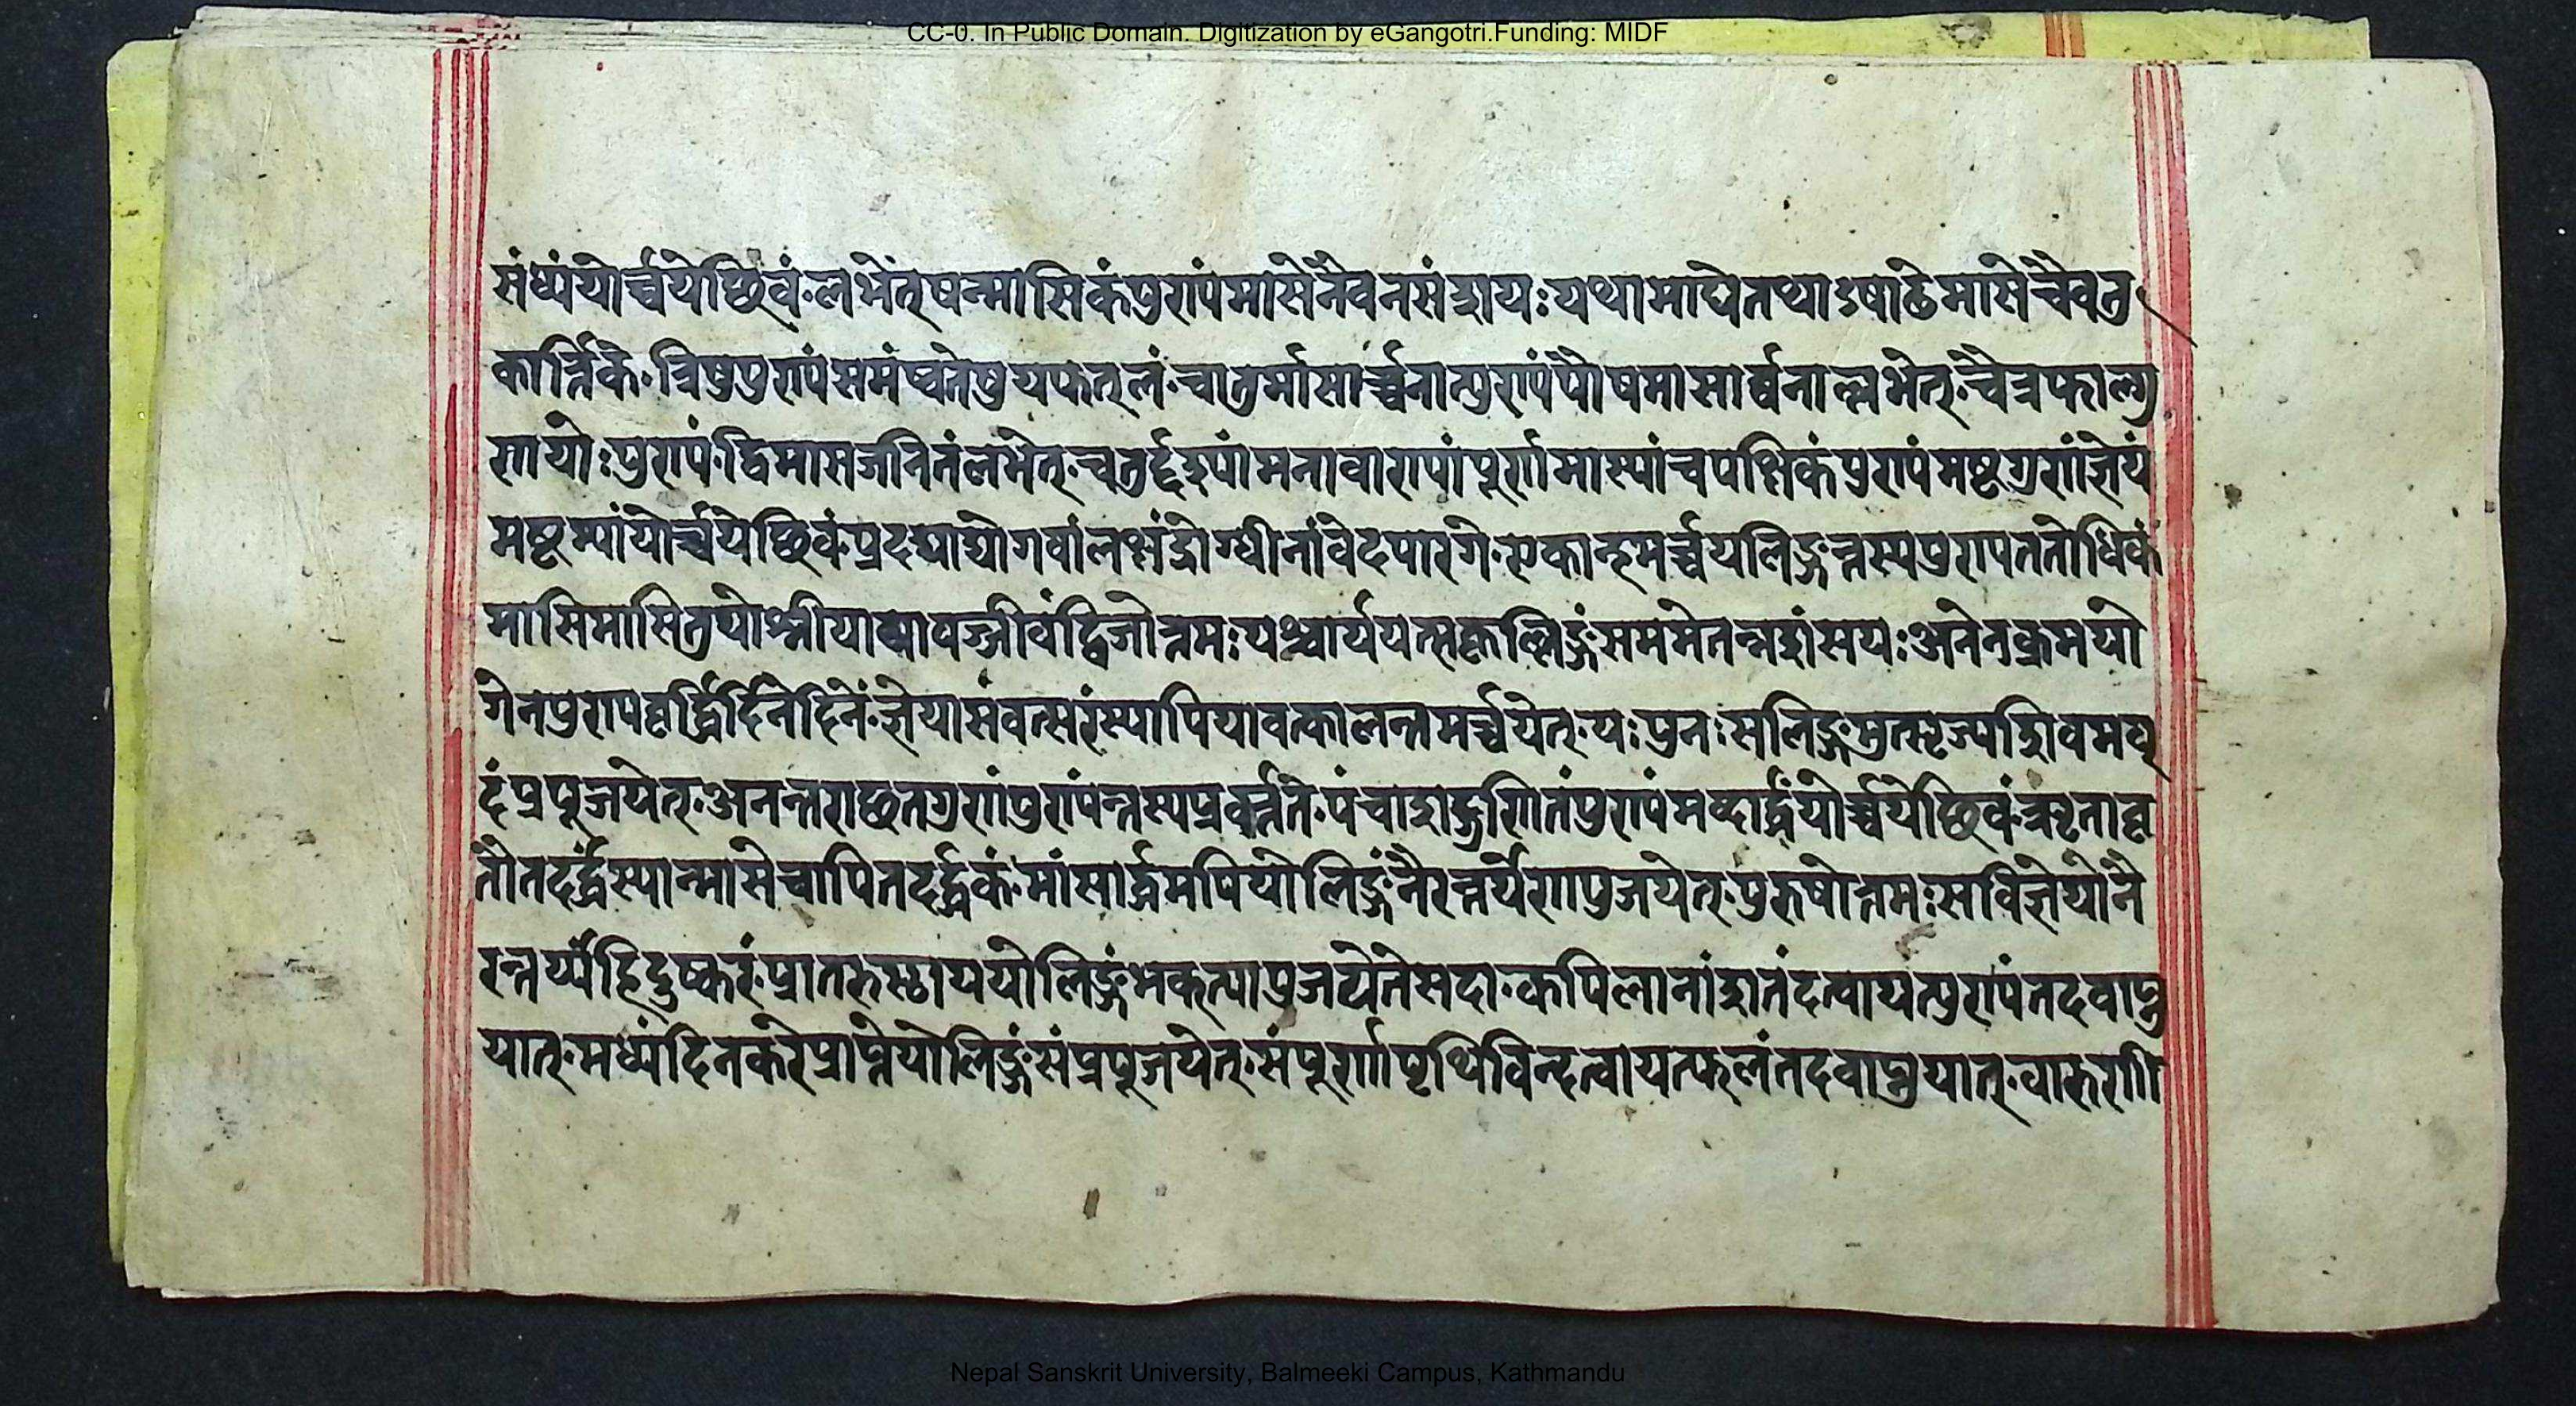 CC-0. In Public Domain. Digitization by eGangotri.Funding: MIDF
संध्यंयोर्च्चयेछिवं·लभेत्षन्मासिकंपुण्यंमासेनैवनसंशयः यथामाघेतथाऽषाढेमासेचैवतु
कार्त्तिके·त्रिषुपुण्यंसमंष्वतेषुयफत्लं·चातुर्मासार्च्चनात्पुण्यंपौषमासार्च्चनाल्लभेत्·चैत्रफाल्गु
णायोः पुण्यं·द्विमासजनितंलभेत्·चतुर्द्दश्यांमनावाश्यांपूर्णमास्यांचपक्षिकंपुण्यंमष्टगुणंज्ञेयं
मष्टम्यांयोर्च्चयेछिवं·प्रदद्याद्योगवांलक्षंद्रोग्ध्रीनांवेदपारगे·एकान्हमर्च्चयलिङ्गन्तस्यपुण्यततोधिकं
मासिमासितुयोश्नीयाद्यावज्जीवंद्विजोत्तमः यश्चार्ययत्सकृल्लिङ्गंसममेतन्नशंसयः अनेनक्रमयो
गेनपुण्यवृर्द्धिर्दिनेदिने·ज्ञेयासंवत्सरंस्यापियावत्कालन्तमर्च्चयेत्·यः पुनः सलिङ्गमुत्सृज्यशिवमघृ
दंप्रपूजयेत्·अनन्तराछतगुणंपुण्यंन्तस्यप्रवर्त्तते·पंचाशद्गुणितंपुण्यंमब्दार्द्धंयोर्च्चयेछिवं·ऋतावृ
तौतदर्द्धंस्यान्मासेचापितदर्द्धकं·मांसार्द्धमपियोलिङ्गंनैरन्तर्येणपुजयेत्·पुरुषोत्तमः सविज्ञेयोनै
रन्तर्य्यंहिदुष्करं·प्रातरुस्छाययोलिङ्गंभक्त्यापुजयेत्तेसदा·कपिलानांशतंदत्वायत्पुण्यंतदवाप्नु
यात्·मध्यंदिनकरेप्राप्तेयोलिङ्गंसंप्रपूजयेत्·संपूर्णपृथिविन्दत्वायत्फलंतदवाप्नुयात्·वारुणी
Nepal Sanskrit University, Balmeeki Campus, Kathmandu